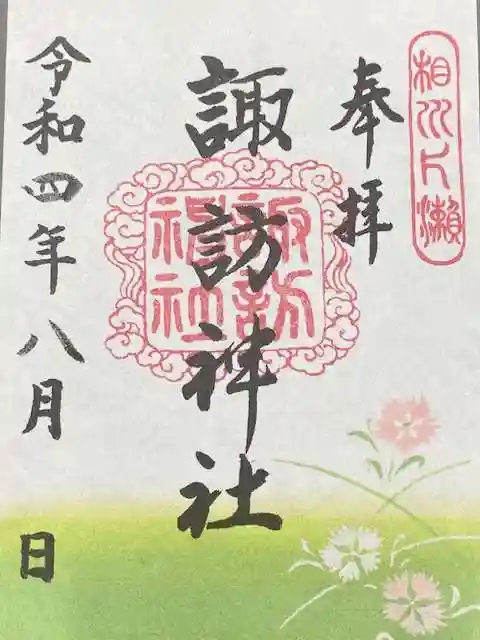 相州片瀬
奉拝
諏訪神社
諏訪神社
令和四年八月 日